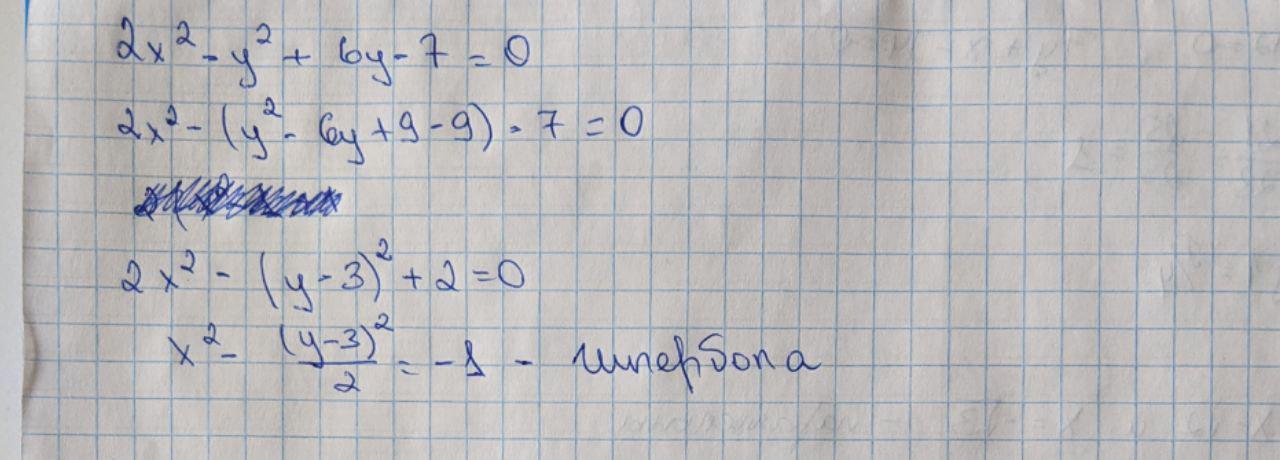 2x² - y² + 6y - 7 = 0
2x² - (y² - 6y + 9 - 9) - 7 = 0
2x² - (y - 3)² + 2 = 0
x² - (y-3)²/2 = -1 - гипербола